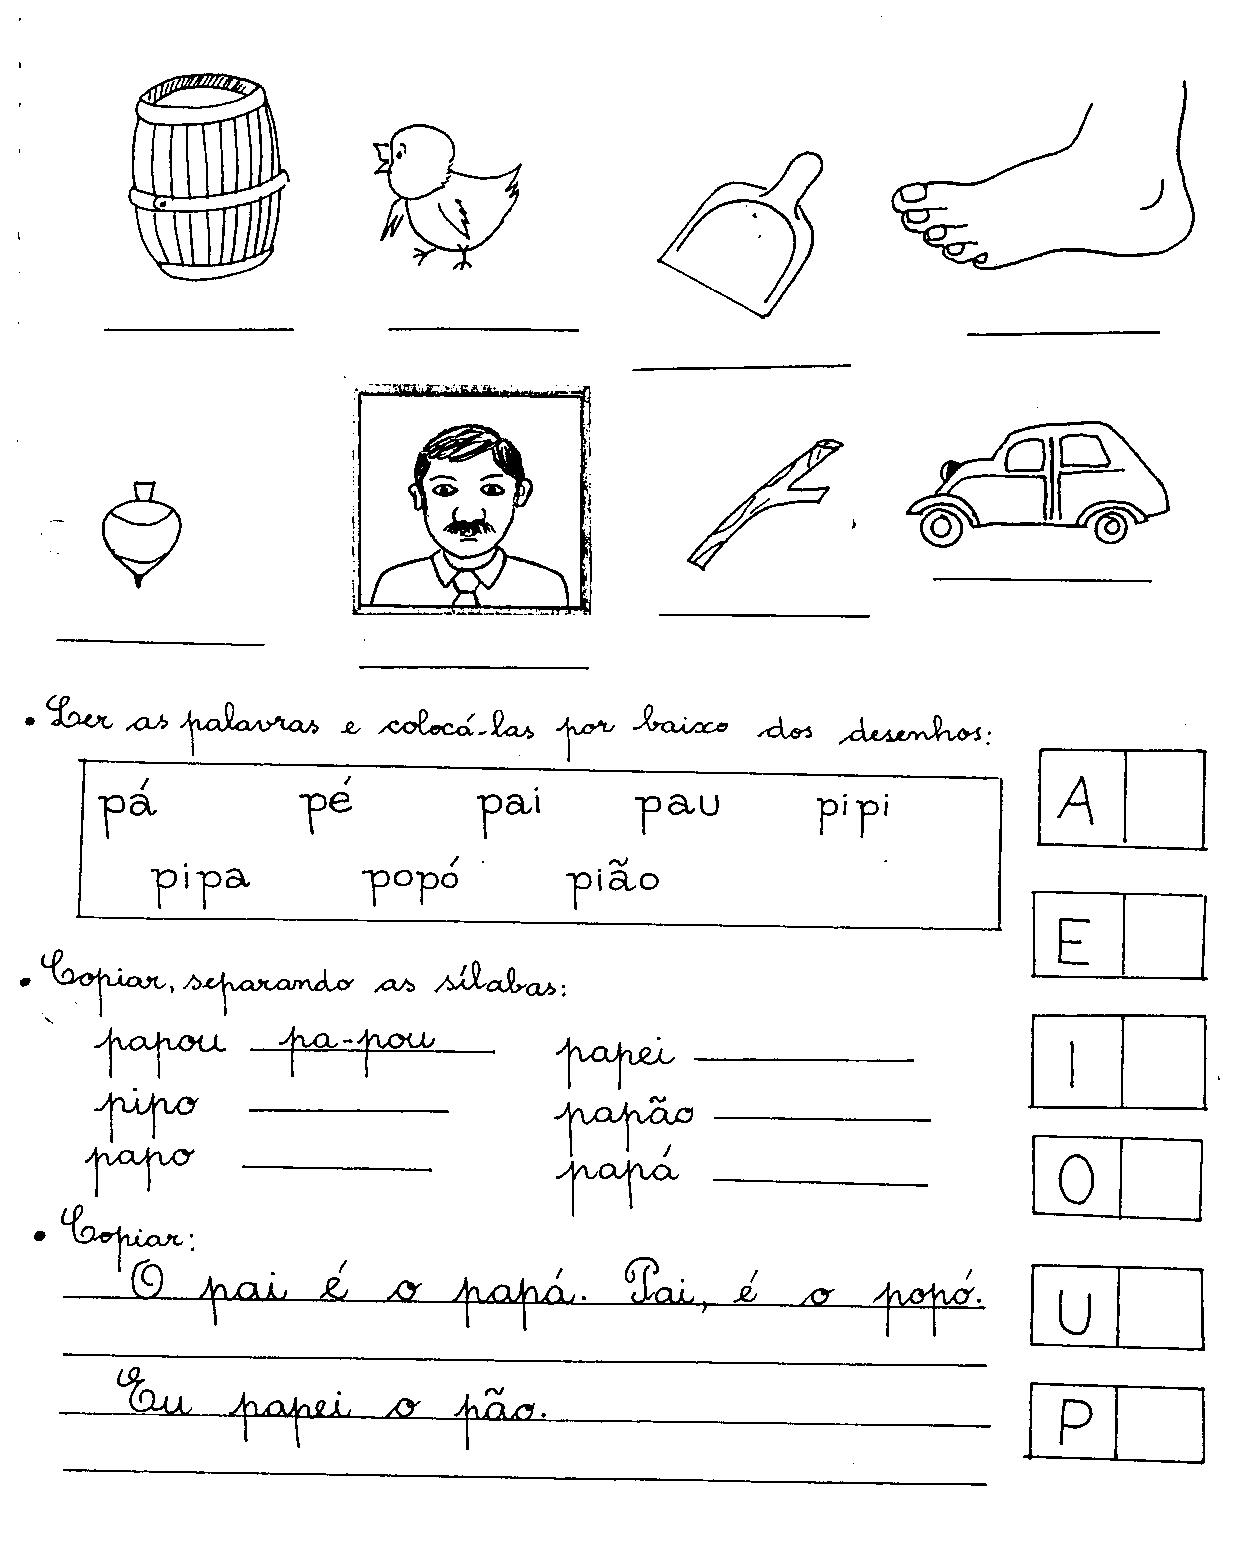 Ler as palavras e colocá-las por baixo dos desenhos:
pá pé pai pau pipi
pipa popó pião
A
E
I
O
U
P
Copiar, separando as sílabas:
papou pa-pou papei
pipo papão
papo papá
Copiar:
O pai é o papá. Pai, é o popó.
Eu papei o pão.